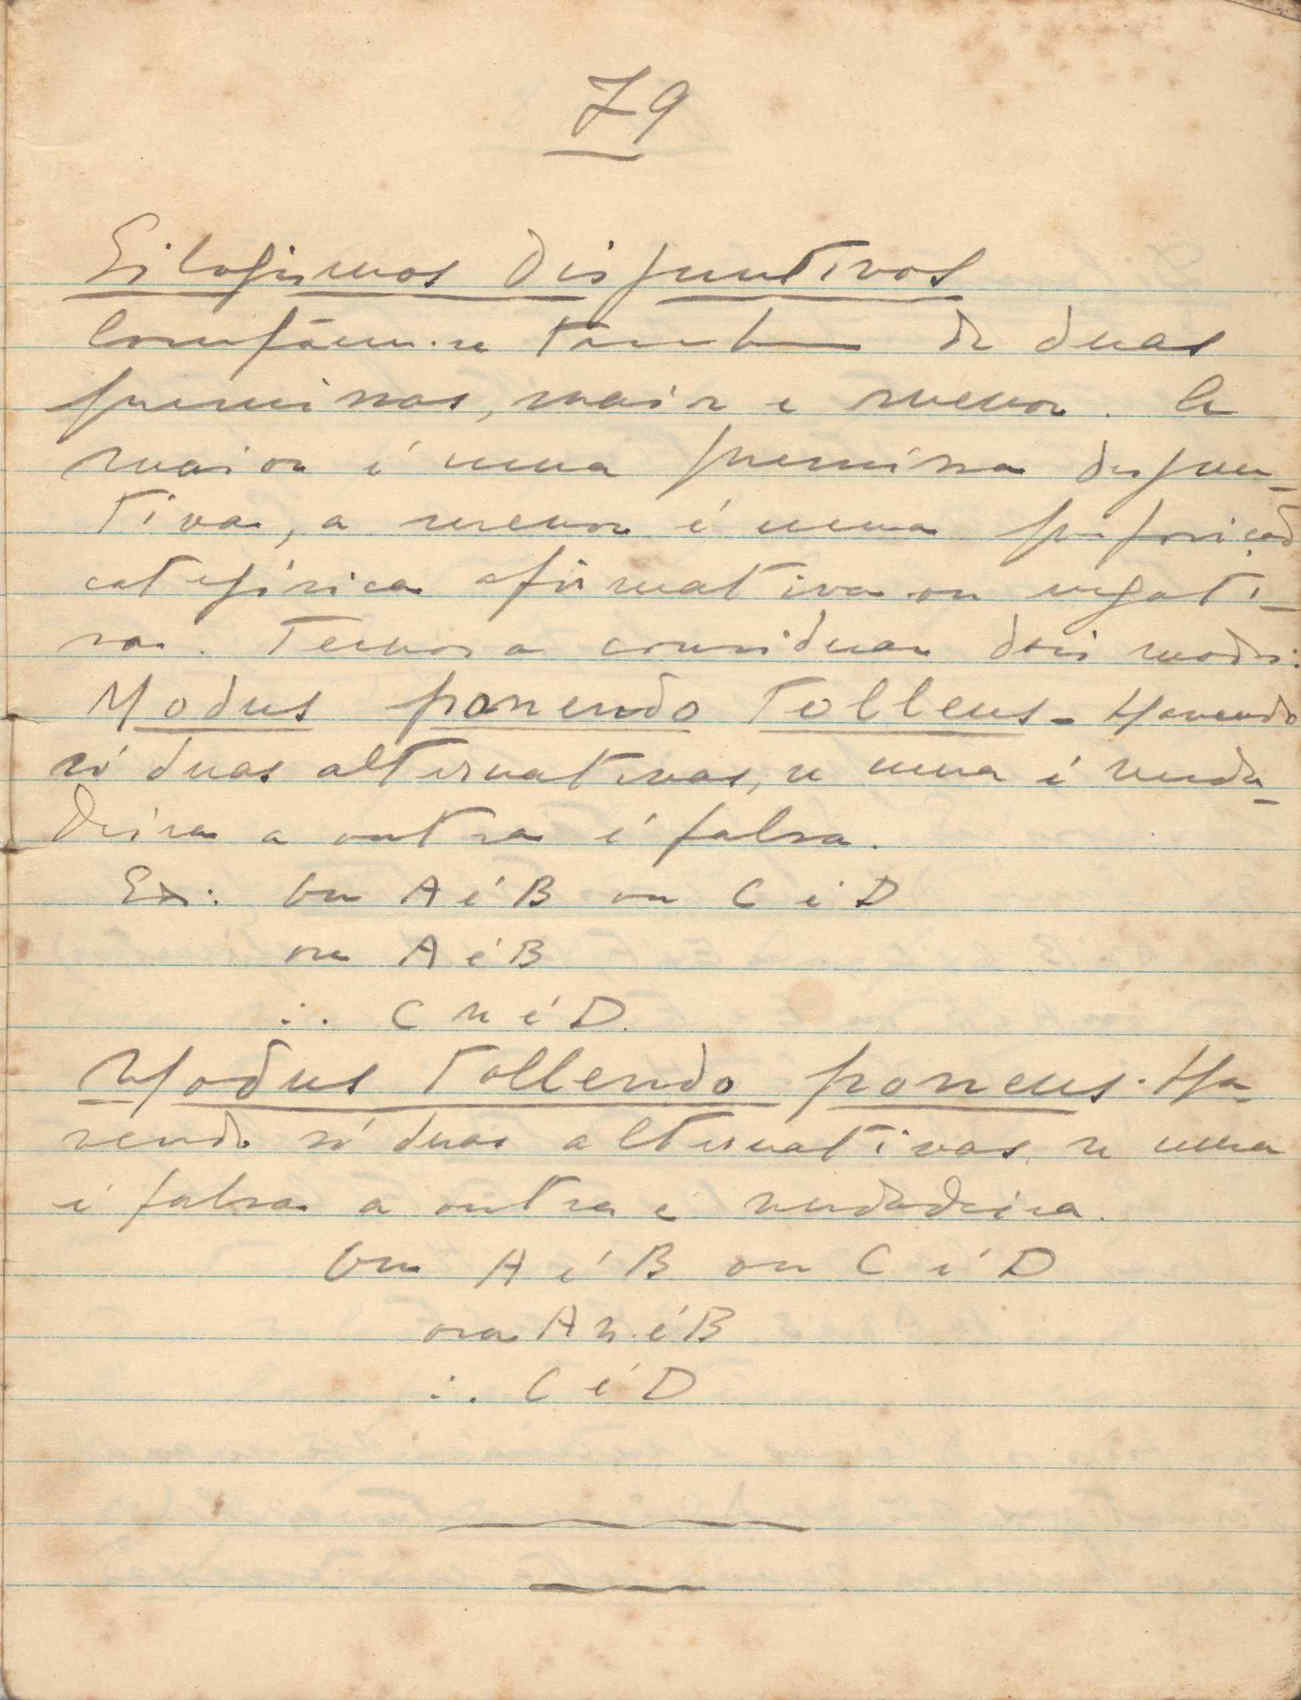 79
Silogismos Disjuntivos
Compõem-se também de duas
premissas, maior e menor. A
maior é uma premissa disjun-
tiva, a menor é uma proposição
categórica afirmativa ou negati-
va. Temos a considerar dois modos:
Modus ponendo Tollens - Havendo
só duas alternativas, se uma é verda-
deira a outra é falsa.
Ex: Ou A é B ou C é D
ou A é B
∴ C n é D.
Modus Tollendo ponens. Ha-
vendo só duas alternativas, se uma
é falsa a outra e verdadeira.
Ou A é B ou C é D
ora A n. é B
∴ C é D